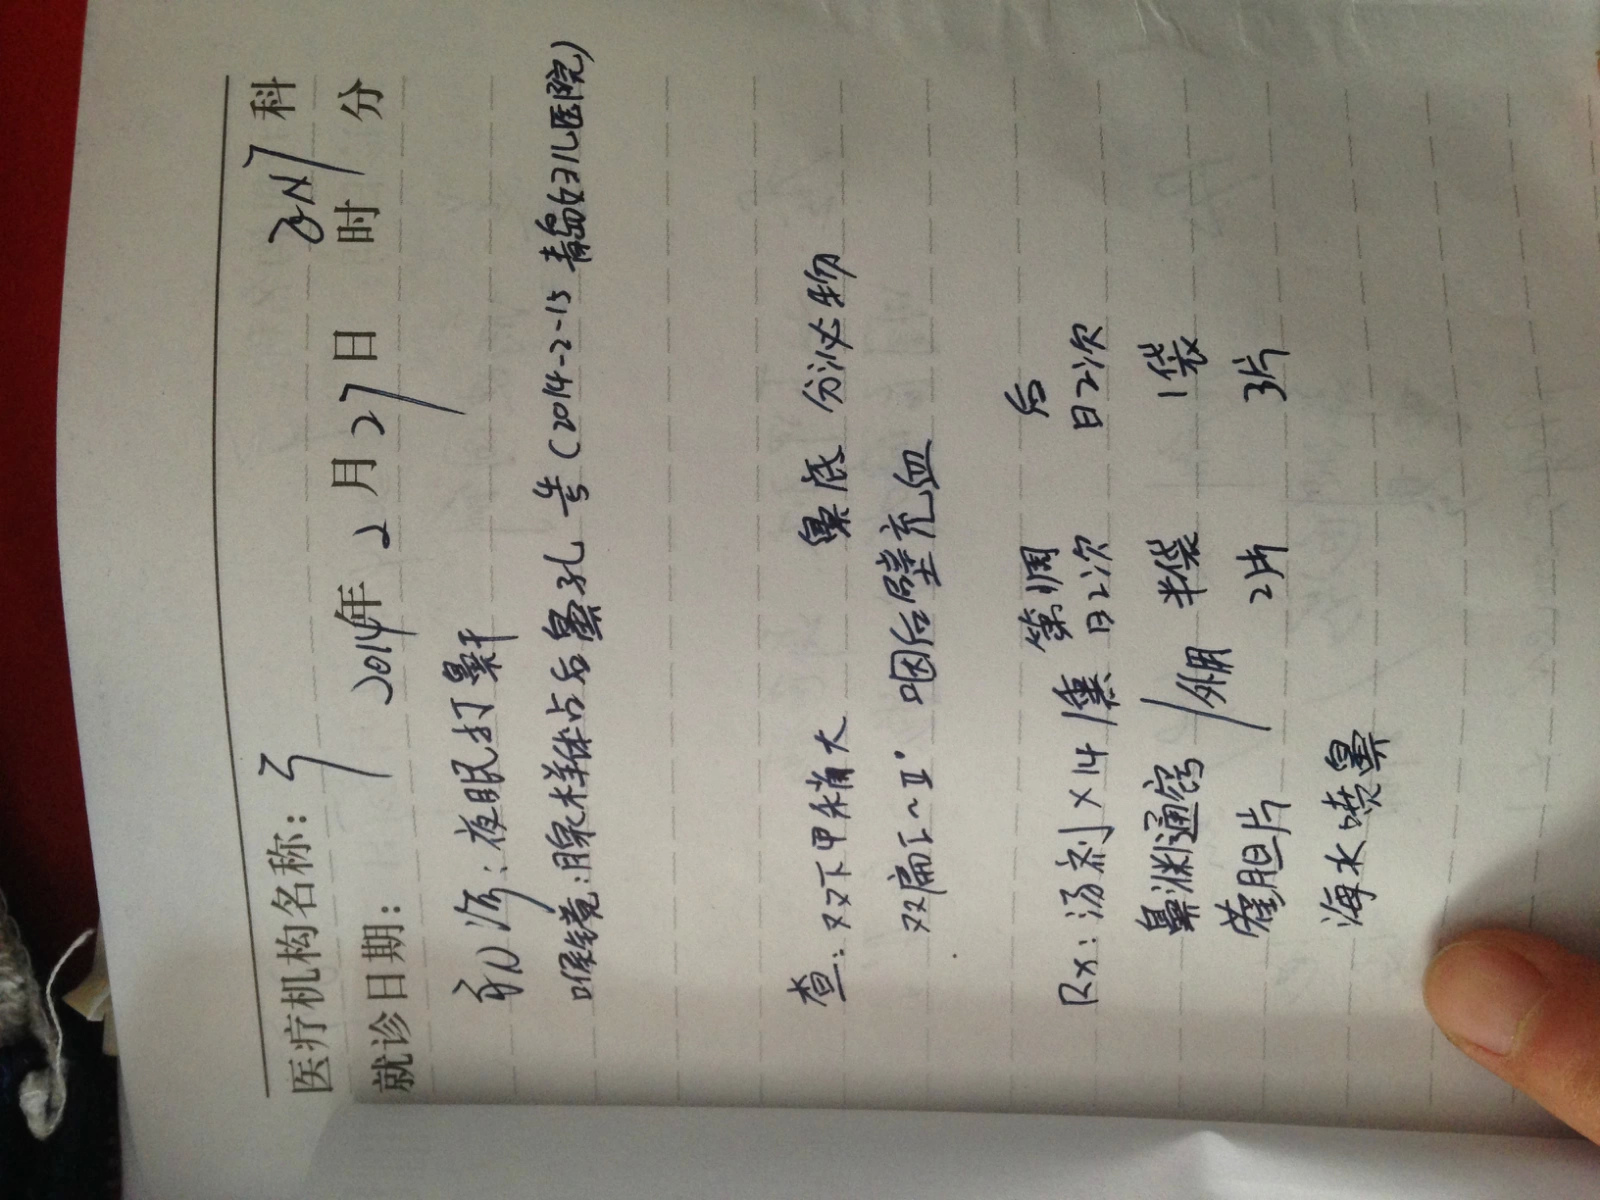 医疗机构名称： 科
就诊日期：2014年2月27日 时 分
初诊：夜眠打鼾
喉镜：腺样体占后鼻孔 (2014-2-15 青岛妇儿医院)
查：双下甲稍大 鼻底 分泌物
双扁I~II° 咽后壁充血
第1周 后
Rx：汤剂×14 熏 日2次 日2次
鼻渊通窍 外用 半袋 1袋
藿胆片 2片 3片
海水喷鼻